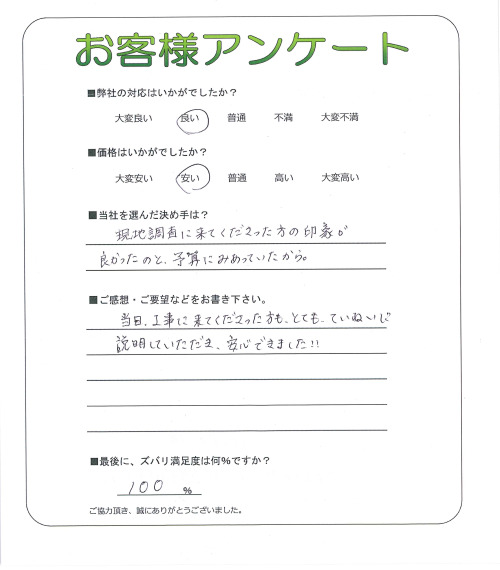 お客様アンケート
■弊社の対応はいかがでしたか？
大変良い 良い 普通 不満 大変不満
■価格はいかがでしたか？
大変安い 安い 普通 高い 大変高い
■当社を選んだ決め手は？
現地調査に来てくださった方の印象が
良かったのと、予算にみあっていたから。
■ご感想・ご要望などをお書き下さい。
当日、工事に来てくださった方も、とても、ていねいに
説明していただき、安心できました!!
■最後に、ズバリ満足度は何%ですか？
100 %
ご協力頂き、誠にありがとうございました。